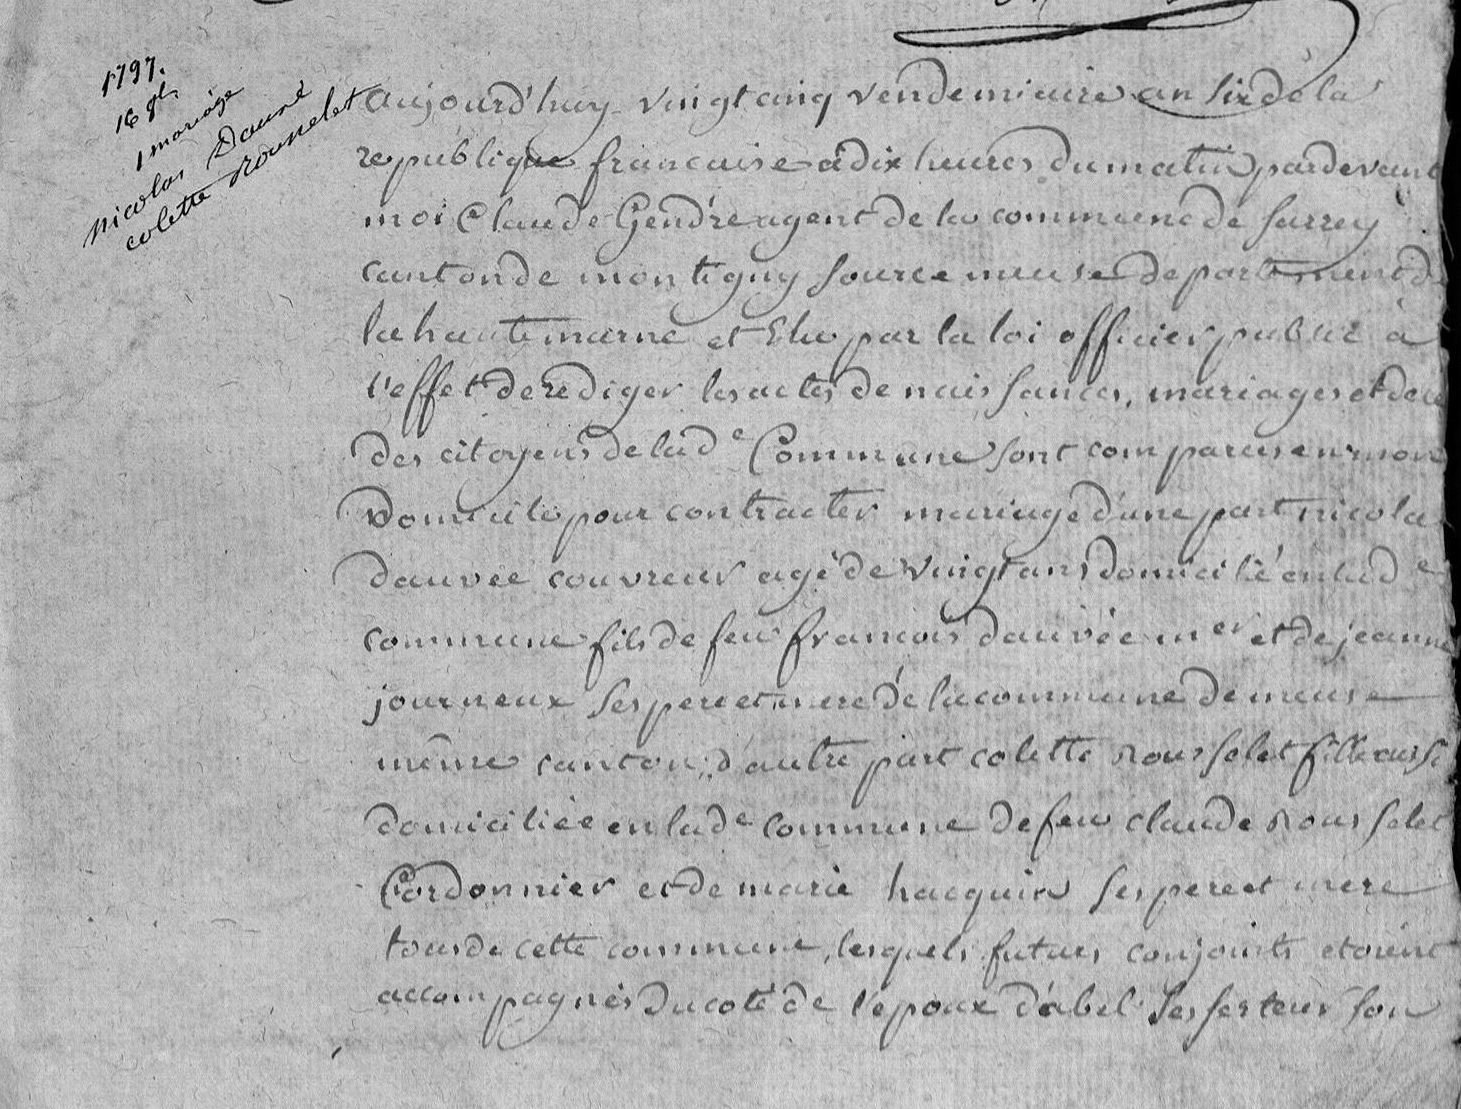 1797.
16 8b.
1 mariage
Nicolas Dauvé
colette Rousselet
aujourd'huy vingt cinq vendemiaire an six de la
republique francaise à dix heures du matin pardevant
moi Claude Gendre agent de la commune de Sarrey
canton de montigny source meuse departement de
la haute marne et Elu par la loi officier public à
l'effet de rediger les actes de naissances, mariages et dece
des citoyens de lad e Commune sont comparus en mon
Domicile pour contracter mariage d'une part nicola
dauvée couvreur agé de vingt ans domicilié en lad e
commune fils de feu francois dauvée m er et de jeanne
journeux ses pere et mere de la commune de meuse
même canton, d'autre part colette rousselet fille aussi
domiciliée en lad e commune de feu claude rousselet
Cordonnier et de marie hacquin ses pere et mere
tous de cette commune, lesquels futurs conjoints etoient
accompagnés du coté de l'epoux d'abel son